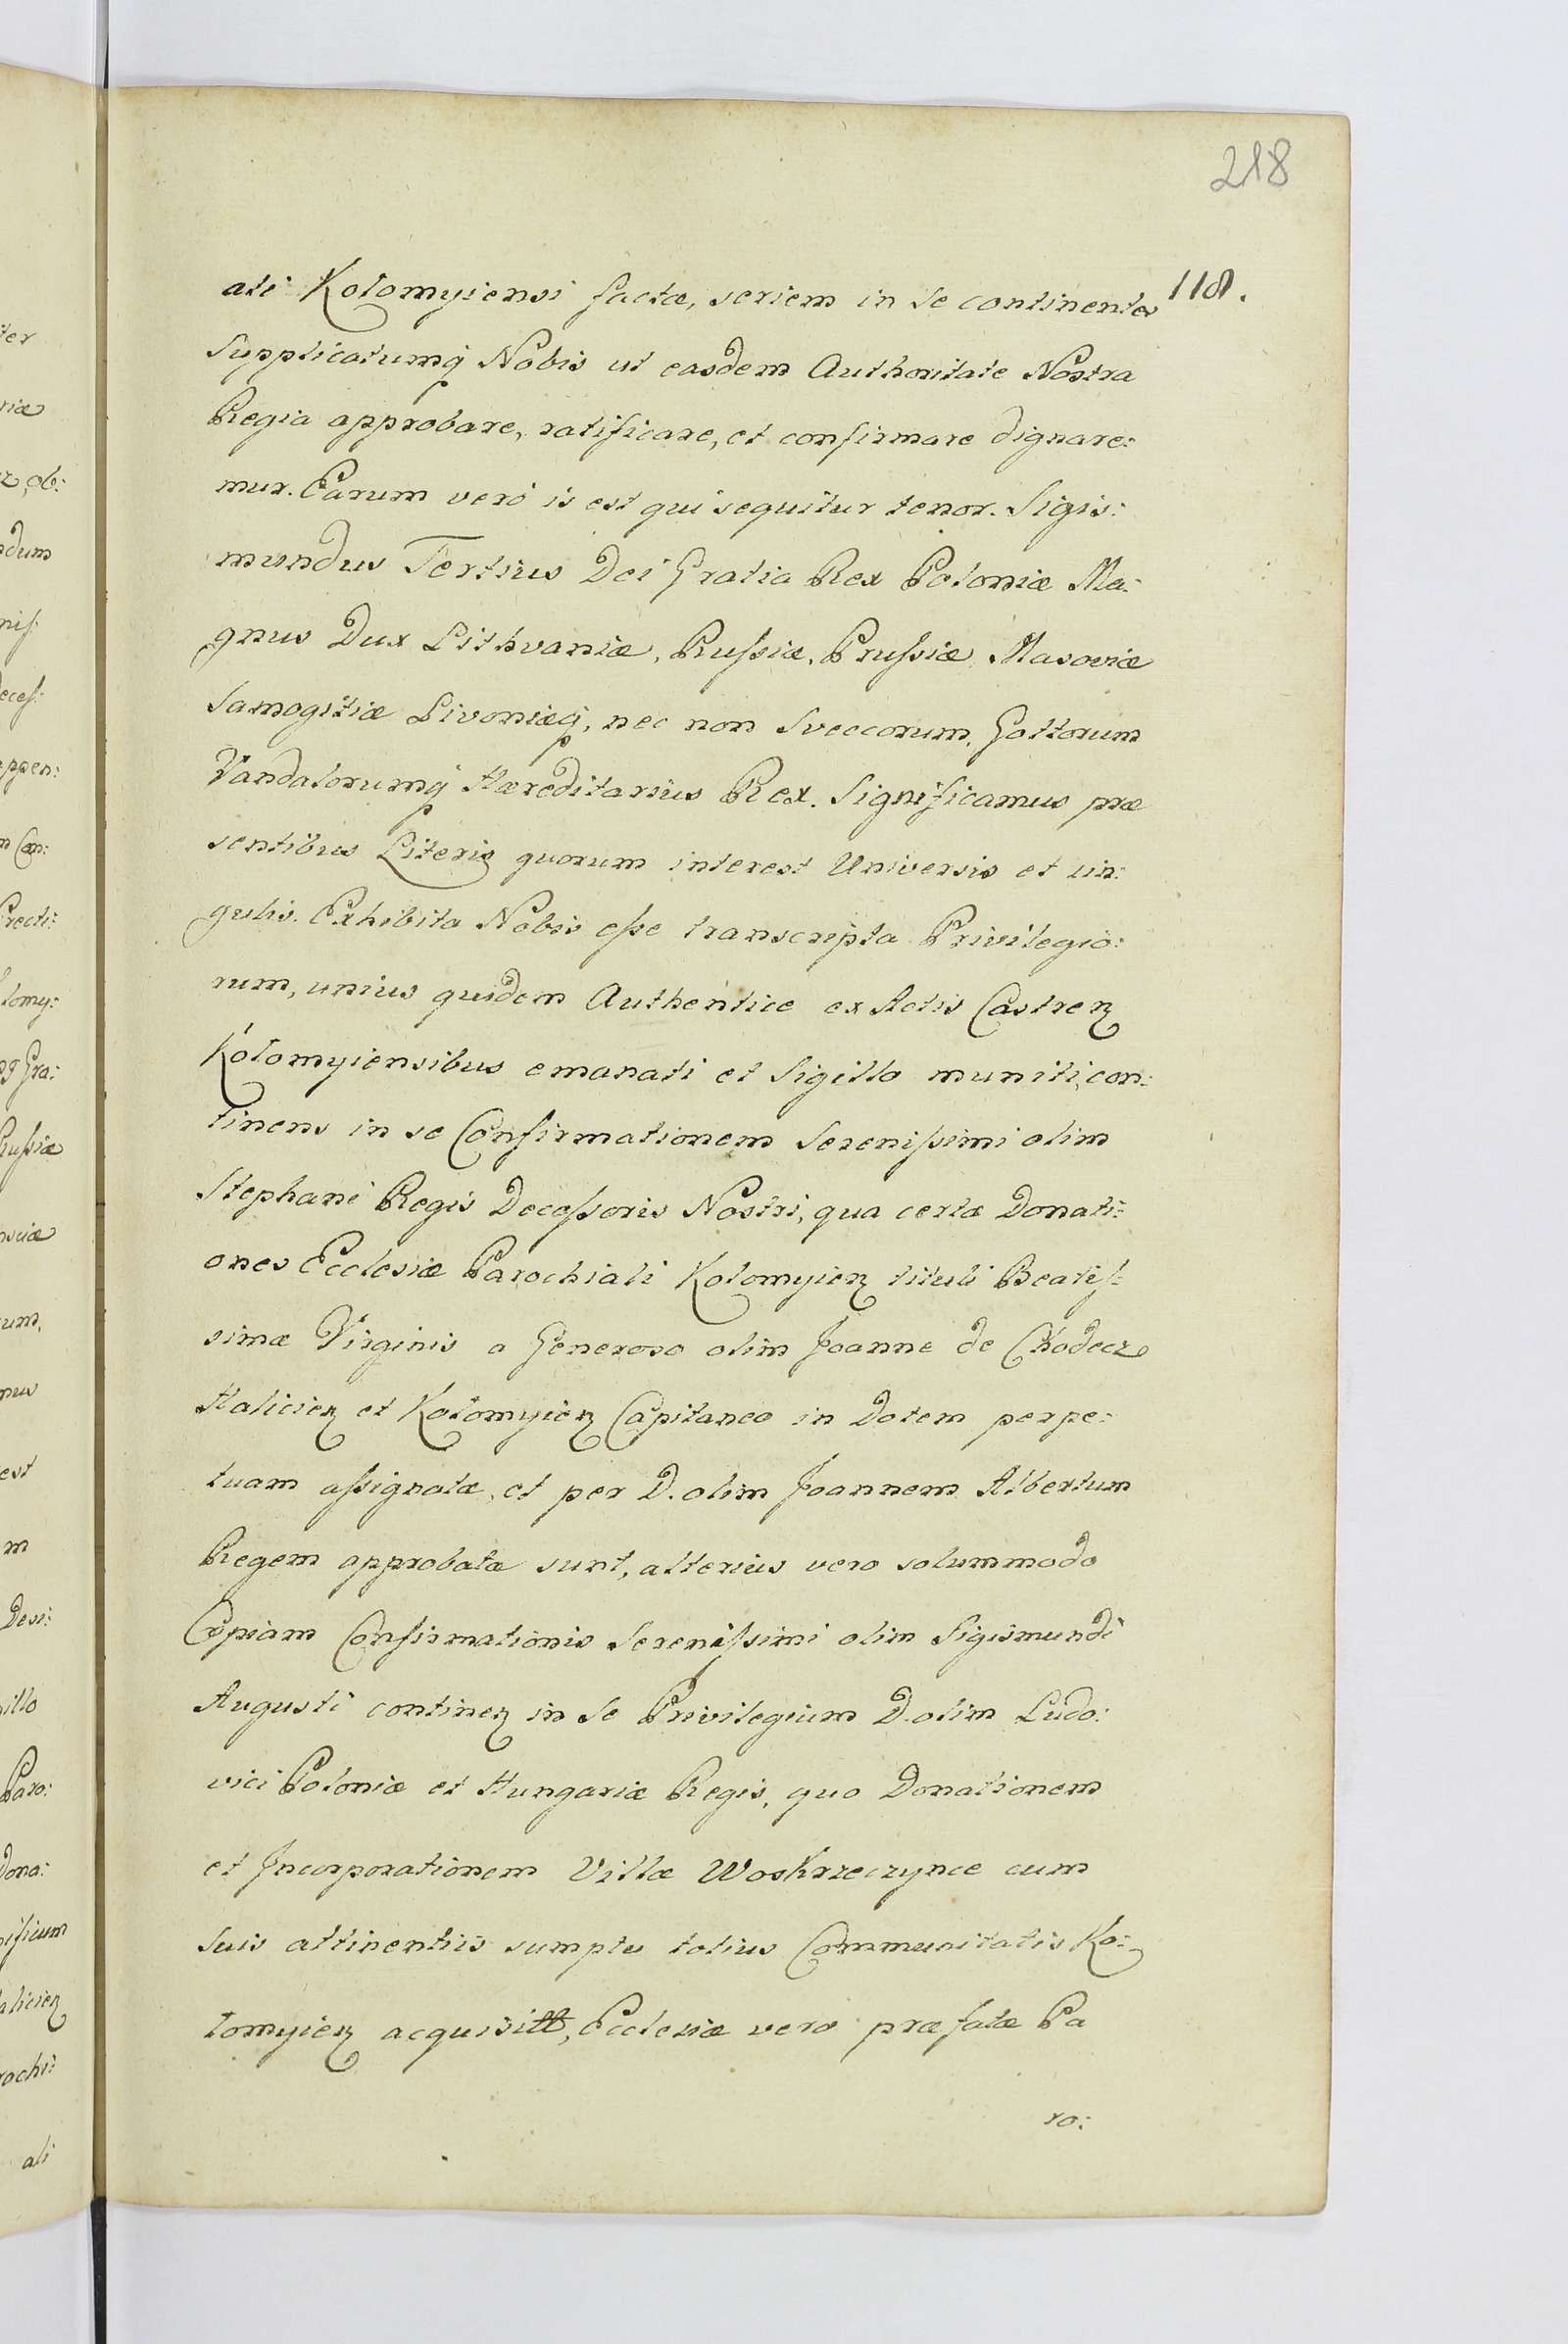 218
118.
ali Kołomyiensi factæ, seriem in se continentes
Supplicatumq̃ Nobis ut easdem Authoritate Nostra
Regia approbare, ratificare, et confirmare dignare:
mur. Earum verò is est qui sequitur tenor. Sigis:
mundus Tertius Dei Gratia Rex Poloniæ Ma:
gnus Dux Lithvaniæ, Rußiæ, Prußiæ Masoviæ
Samogitiæ Livoniæq̃, nec non Sveccorum, Gottorum
Vandalorumq̃ Hæreditarius Rex. Significamus præ
sentibus Literis quorum interest Universis et sin:
gulis. Exhibita Nobis eße transcripta Privilegio:
rum, unius quidem Authentice ex Actis Castreꝝ
Kołomyiensibus emanati et Sigillo muniti, con:
tinens in se Confirmationem Serenißimi olim
Stephani Regis Deceßoris Nostri, qua certæ Donati:
ones Ecclesiæ Parochiali Kołomyieꝝ tituli Beatiſ:
simæ Virginis a Generoso olim Joanne de Chodecz
Halicieꝝ et Kołomyieꝝ Capitaneo in Dotem perpe:
tuam aßignatæ, et per D. olim Joannem Albertum
Regem approbatæ sunt, alterius vero solummodo
Copiam Confirmationis Serenißimi olim Sigismundi
Augusti contineꝝ in se Privilegium D. olim Ludo:
vici Poloniæ et Hungariæ Regis, quo Donationem
et Incorporationem Villæ Woskrzeczynce cum
suis attinentiis sumptu totius Communitatis Ko:
łomyieꝝ acquisitt, Ecclesiæ vero præfatæ Pa
ro: